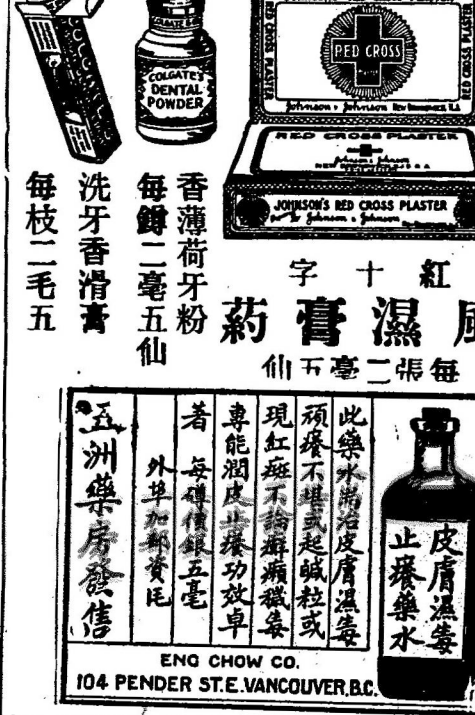 COLGATE'S
DENTAL
POWDER
RED CROSS
Johnson & Johnson
RED CROSS PLASTER
JOHNSON'S RED CROSS PLASTER
Johnson & Johnson
紅十字
風濕膏葯
每張二毫五仙
香薄荷牙粉
每罇二毫五仙
洗牙香滑膏
每枝二毛五
皮膚濕毒
止癢藥水
此藥水耑治皮膚濕毒
頑癢不堪或起碱粒或
現紅斑不論癬癩
專能潤皮止癢功效卓
著 每磚價銀五毫
外埠加郵資
五洲藥房發售
ENG CHOW CO.
104 PENDER ST.E. VANCOUVER, B.C.